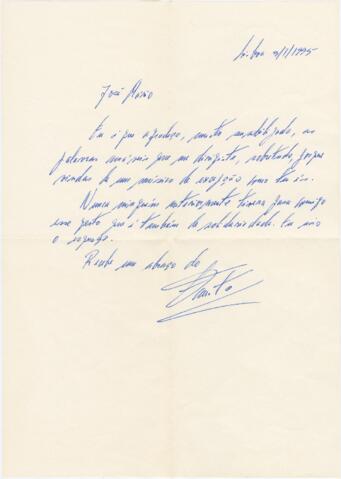 Lisboa 3/1/1995
José Mário
Eu é que agradeço, muito sensibilizado, as
palavras amáveis que me dirigiste, sobretudo porque
vindas de um músico de excepção como tu és.
Nunca ninguém anteriormente tivera para comigo
esse gesto que é também de solidariedade. Eu não
o esqueço.
Recebe um abraço do